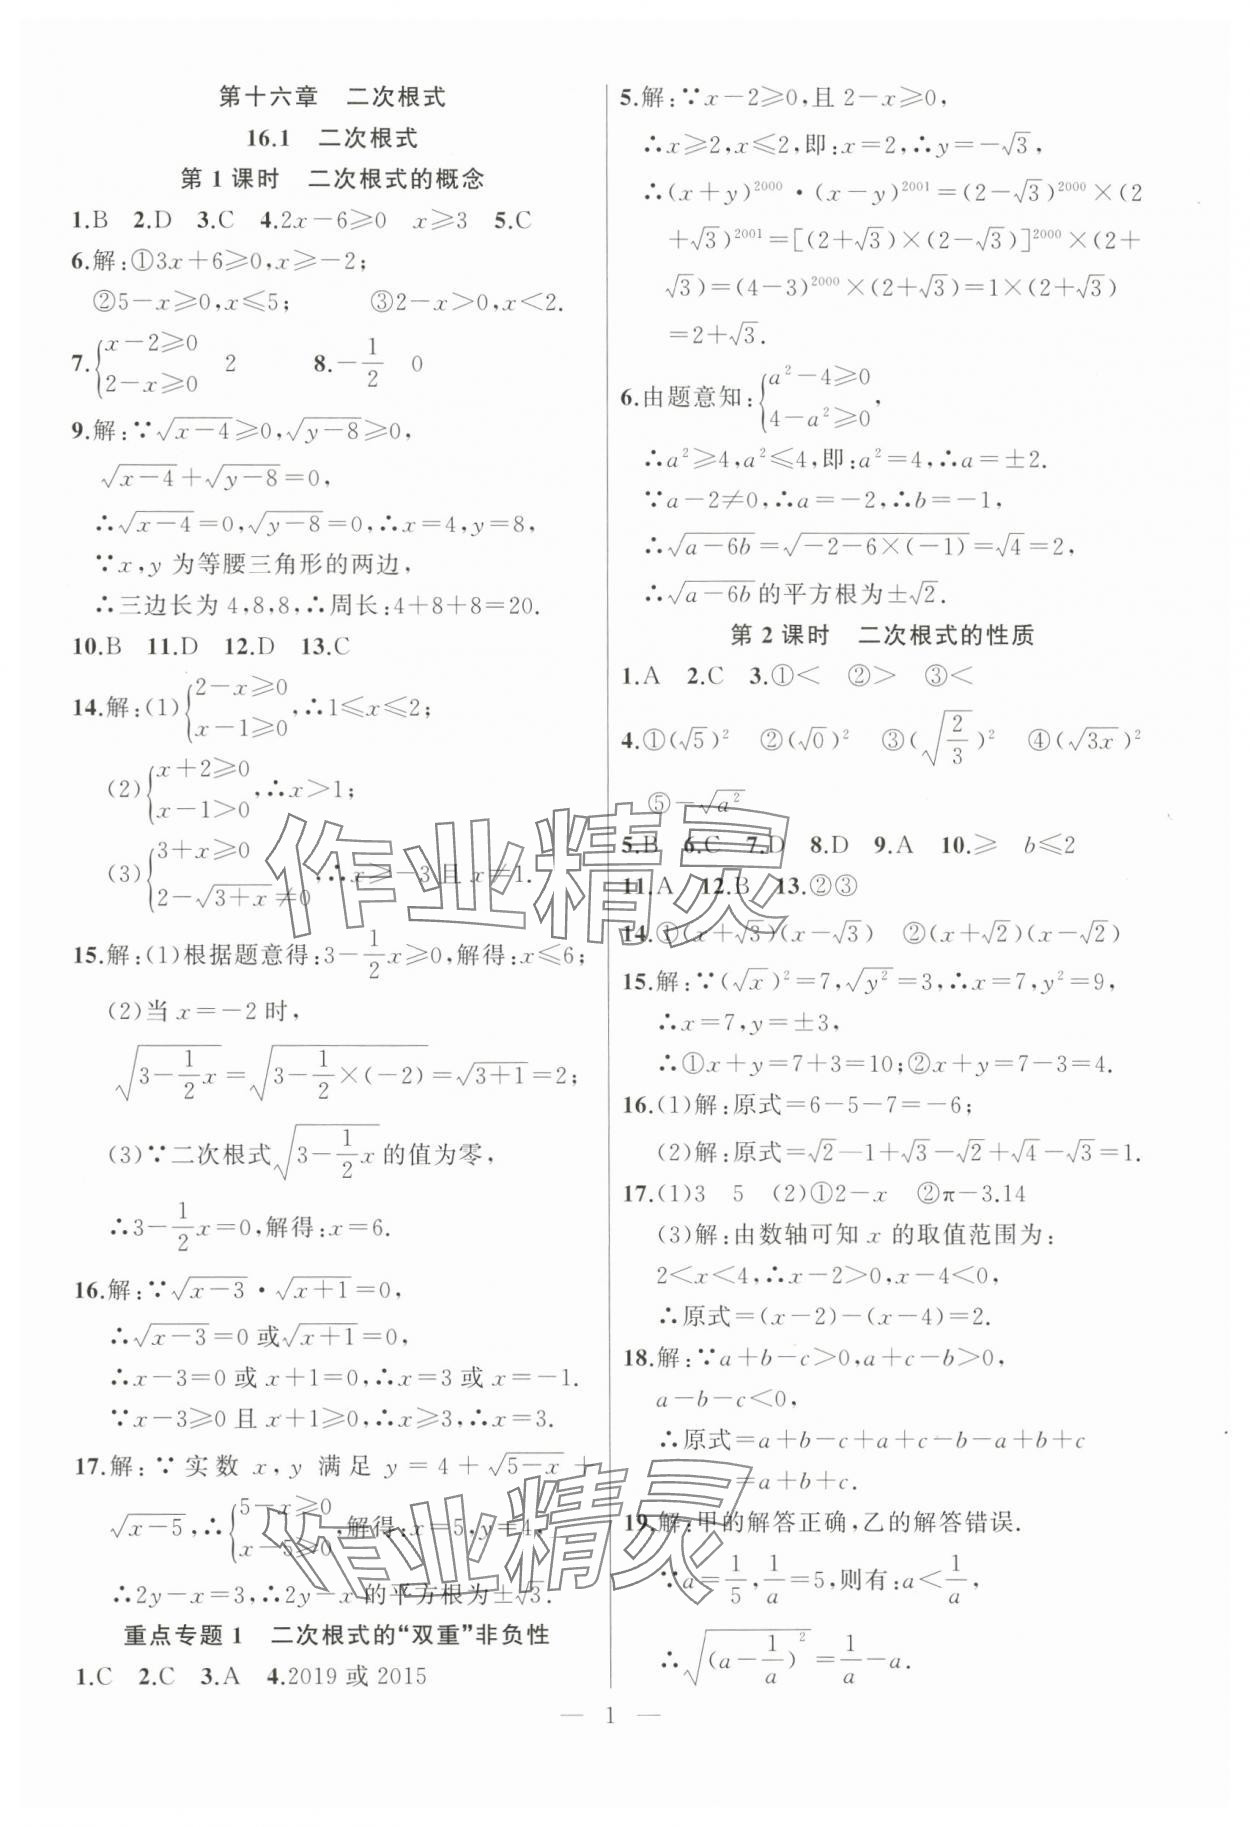 第十六章　二次根式
16.1　二次根式
第1课时　二次根式的概念
1.B　2.D　3.C　4.2x－6≥0　x≥3　5.C
6.解:①3x＋6≥0,x≥－2;
②5－x≥0,x≤5;　③2－x＞0,x＜2.
7.{x－2≥0 2－x≥0　2　8.－1/2　0
9.解:∵√(x－4)≥0,√(y－8)≥0,
√(x－4)＋√(y－8)＝0,
∴√(x－4)＝0,√(y－8)＝0,∴x＝4,y＝8,
∵x,y 为等腰三角形的两边,
∴三边长为 4,8,8,∴周长:4＋8＋8＝20.
10.B　11.D　12.D　13.C
14.解:(1){2－x≥0 x－1≥0,∴1≤x≤2;
(2){x＋2≥0 x－1＞0,∴x＞1;
(3){3＋x≥0 2－√(3＋x)≠0,∴x≥－3且x≠1.
15.解:(1)根据题意得:3－1/2x≥0,解得:x≤6;
(2)当 x＝－2时,
√(3－1/2x)＝√(3－1/2×(－2))＝√(3＋1)＝2;
(3)∵二次根式√(3－1/2x)的值为零,
∴3－1/2x＝0,解得:x＝6.
16.解:∵√(x－3)·√(x＋1)＝0,
∴√(x－3)＝0或√(x＋1)＝0,
∴x－3＝0 或 x＋1＝0,∴x＝3 或 x＝－1.
∵x－3≥0 且 x＋1≥0,∴x≥3,∴x＝3.
17.解:∵ 实数 x,y 满足 y＝4＋√(5－x)＋
√(x－5),∴{5－x≥0 x－5≥0,解得:x＝5,y＝4,
∴2y－x＝3,∴2y－x 的平方根为±√3.
重点专题1　二次根式的“双重”非负性
1.C　2.C　3.A　4.2019 或 2015
5.解:∵x－2≥0,且 2－x≥0,
∴x≥2,x≤2,即:x＝2,∴y＝－√3,
∴(x＋y)²⁰⁰⁰·(x－y)²⁰⁰¹＝(2－√3)²⁰⁰⁰×(2
＋√3)²⁰⁰¹＝[(2＋√3)×(2－√3)]²⁰⁰⁰×(2＋
√3)＝(4－3)²⁰⁰⁰×(2＋√3)＝1×(2＋√3)
＝2＋√3.
6.由题意知:{a²－4≥0 4－a²≥0,
∴a²≥4,a²≤4,即:a²＝4,∴a＝±2.
∵a－2≠0,∴a＝－2,∴b＝－1,
∴√(a－6b)＝√(－2－6×(－1))＝√4＝2,
∴√(a－6b)的平方根为±√2.
第2课时　二次根式的性质
1.A　2.C　3.①＜　②＞　③＜
4.①(√5)²　②(√0)²　③(√(2/3))²　④(√(3x))²
⑤－√(a²)
5.B　6.C　7.D　8.D　9.A　10.≥　b≤2
11.A　12.B　13.②③
14.①(x＋√3)(x－√3)　②(x＋√2)(x－√2)
15.解:∵(√x)²＝7,√(y²)＝3,∴x＝7,y²＝9,
∴x＝7,y＝±3,
∴①x＋y＝7＋3＝10;②x＋y＝7－3＝4.
16.(1)解:原式＝6－5－7＝－6;
(2)解:原式＝√2－1＋√3－√2＋√4－√3＝1.
17.(1)3　5　(2)①2－x　②π－3.14
(3)解:由数轴可知 x 的取值范围为:
2＜x＜4,∴x－2＞0,x－4＜0,
∴原式＝(x－2)－(x－4)＝2.
18.解:∵a＋b－c＞0,a＋c－b＞0,
a－b－c＜0,
∴原式＝a＋b－c＋a＋c－b－a＋b＋c
＝a＋b＋c.
19.解:甲的解答正确,乙的解答错误.
∵a＝1/5,1/a＝5,则有:a＜1/a,
∴√((a－1/a)²)＝1/a－a.
— 1 —
作业精灵
作业精灵